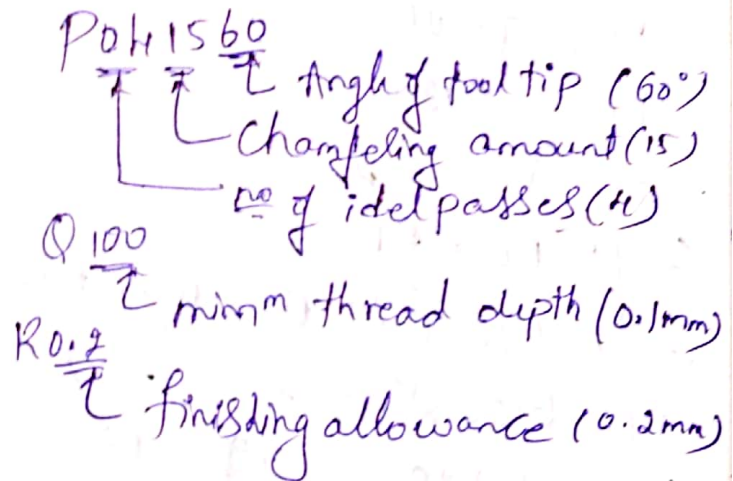 P041560
Angle of tool tip (60°)
Chamfeling amount (15)
no of idel passes (4)
Q 100
minm thread depth (0.1mm)
R0.2
finishing allowance (0.2mm)